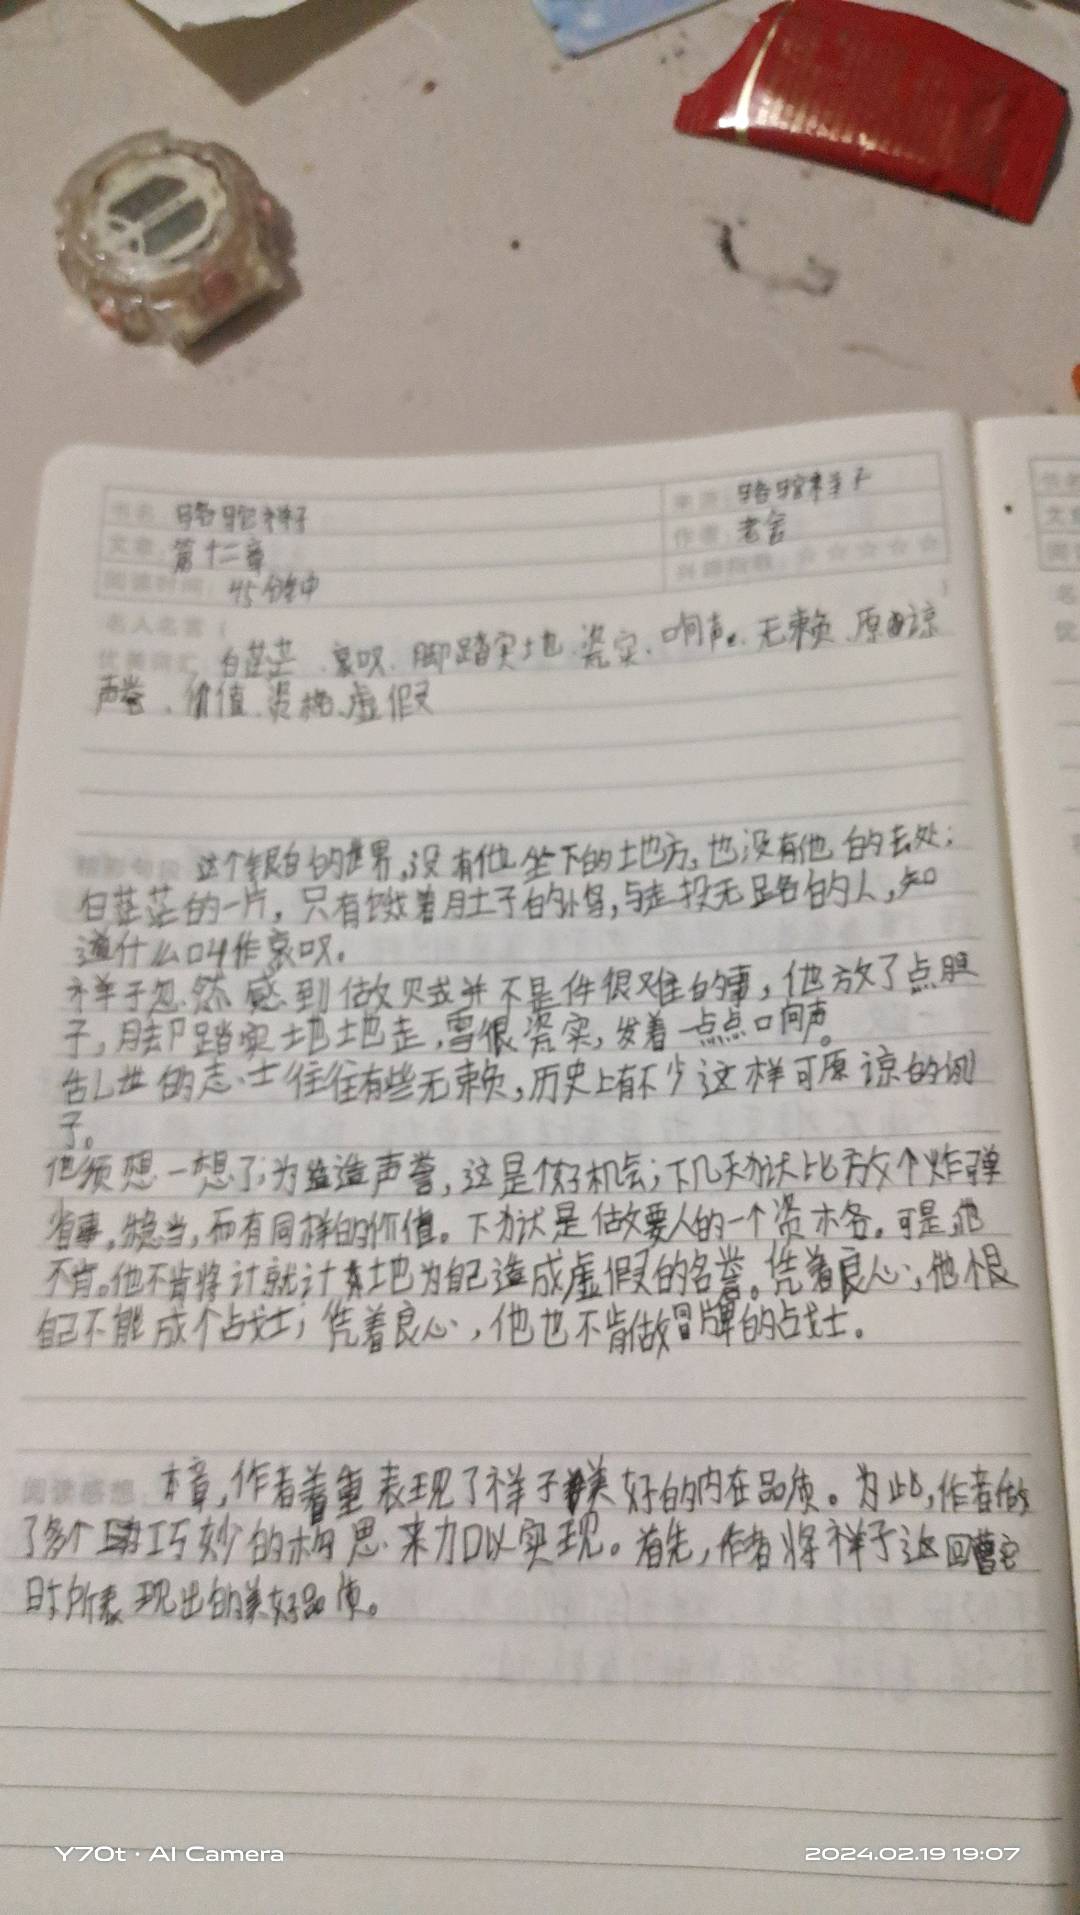 书名 骆驼祥子
来源 骆驼祥子
文章 第十二章
作者 老舍
阅读时间 45分钟
兴趣指数 ☆☆☆☆☆
名人名言 (
优美词汇 白茫茫、哀叹、脚踏实地、瓷实、响声、无赖、原谅
声誉、价值、资格、虚假
精彩句段 这个银白的世界,没有他坐下的土地方,也没有他的去处;
白茫茫的一片,只有饿着肚子的小鸟,与走投无路的人,知
道什么叫作哀叹。
祥子忽然感到做贼并不是件很难的事,他放了点胆
子,脚踏实地地走,雪很瓷实,发着一点点响声。
乱世的志士往往有些无赖,历史上有不少这样可原谅的例
子。
他须想一想了;为造声誉,这是个好机会;下几天狱比放个炸弹
省事,稳当,而有同样的价值。下狱是做要人的一个资格。可是他
不肯。他不肯将计就计地为自己造成虚假的名誉。凭着良心,他恨
自己不能成个战士;凭着良心,他也不肯做冒牌的战士。
阅读感想 本章,作者着重表现了祥子美好的内在品质。为此,作者做
了多个巧妙的构思来加以实现。首先,作者将祥子返回曹宅
时所表现出的美好品质。
Y70t · AI Camera
2024.02.19 19:07